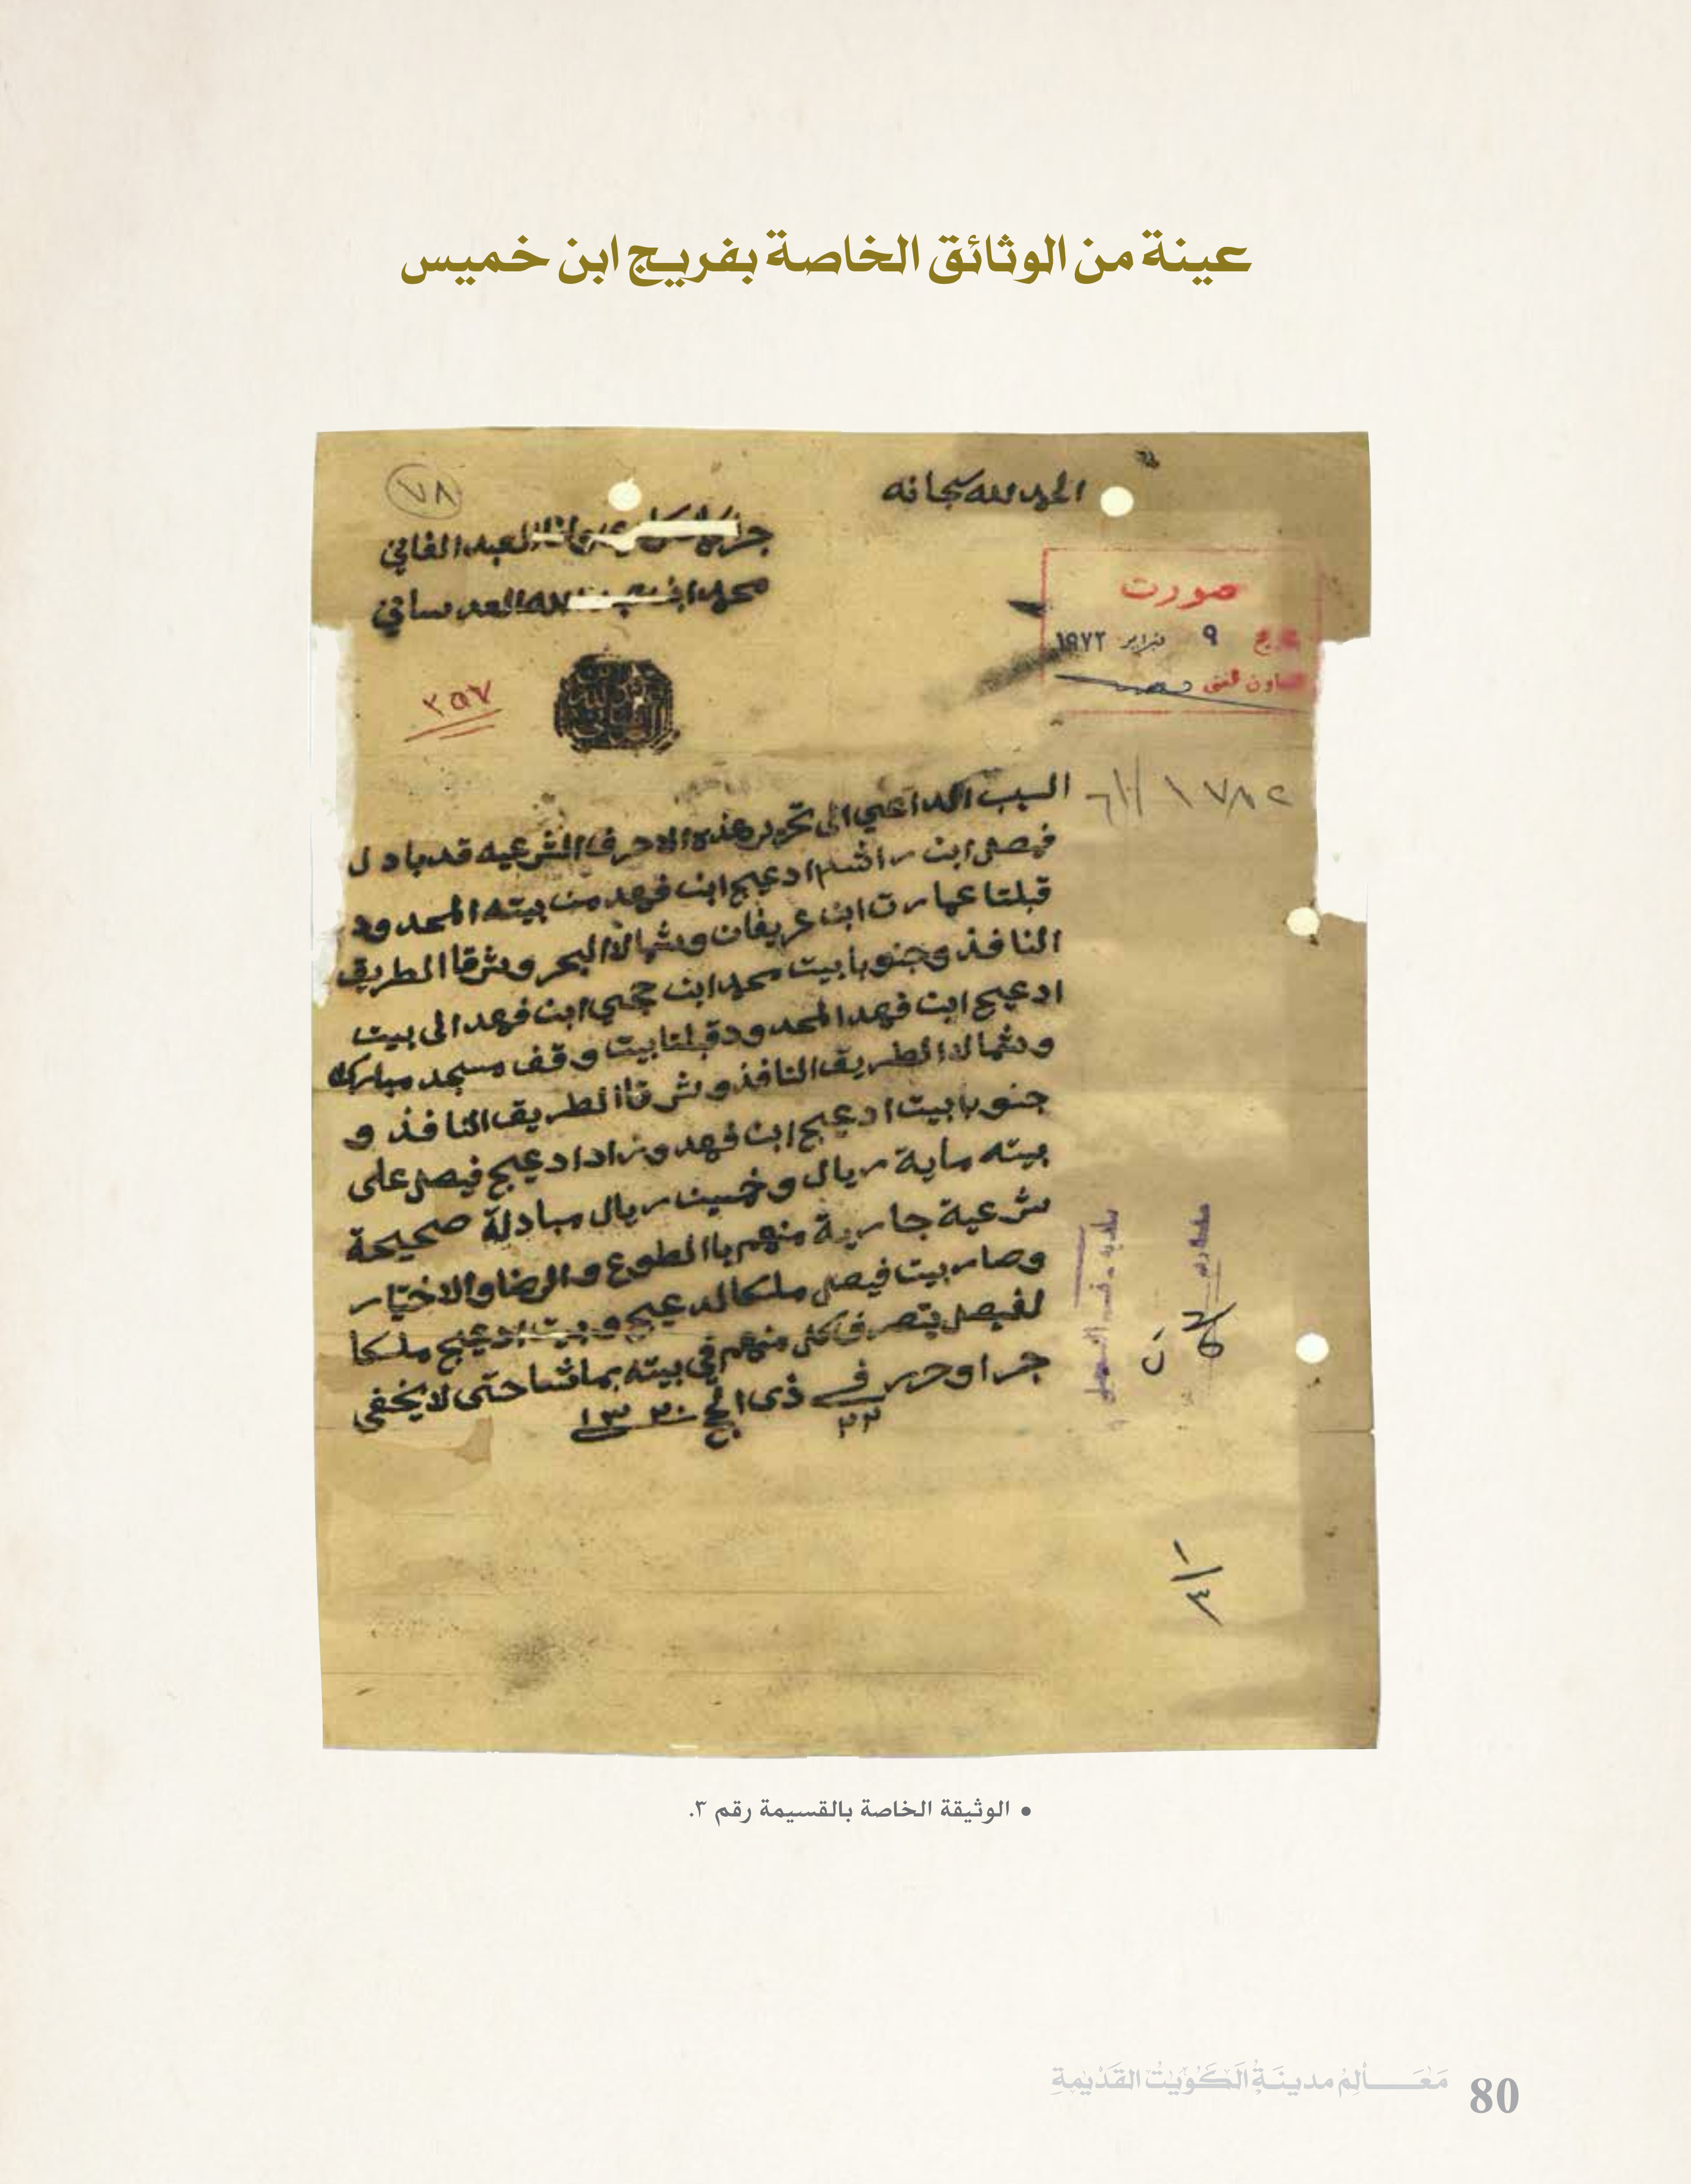 عينة من الوثائق الخاصة بفريج ابن خميس
الحمد لله سبحانه
٧٨
العبد الفاني
محمد ابن عبدالله العدساني
صورت
٩ فبراير ١٩٧٢
التعاون الفني
٣٥٧
السبب الداعي الى تحرير هذه الاحرف الشرعيه قد بادل
فيصل ابن راشد ادعيج ابن فهد من بيته المحدود
قبلتا عمارت ابن عريفان وشمالا البحر وشرقا الطريق
النافذ وجنوبا بيت محمد ابن حجي ابن فهد الى بيت
ادعيج ابن فهد المحدود قبلتا بيت وقف مسجد مبارك
وشمالا الطريق النافذ وشرقا الطريق النافذ و
جنوبا بيت ادعيج ابن فهد وزاد ادعيج فيصل على
بيته ماية ريال وخمسين ريال مبادلة صحيحة
شرعية جارية منهم باالطوع والرضا والاختيار
وصار بيت فيصل ملكا لدعيج وبيت ادعيج ملكا
لفيصل يتصرف كل منهم في بيته بما شا حتى لا يخفى
جرا وحرر في ٢٢ ذي الحج ١٣٣٠
• الوثيقة الخاصة بالقسيمة رقم ٣.
مَعَالِمُ مدينَةُ الكُوَيتُ القَدْيمَةِ
80